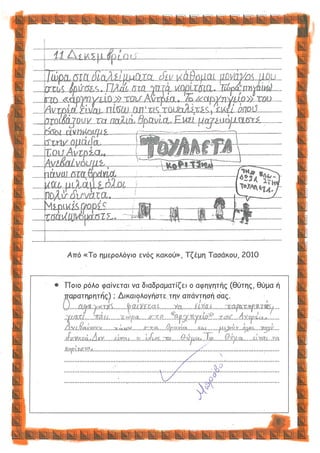 11 Δεκεμβρίου
Τώρα στα διαλείμματα δεν κάθομαι μονάχος μου
στις βρύσες. Πλάι στα χαζά κορίτσια. Τώρα πηγαίνω
στο «αρχηγείο» του Αντρέα. Το «αρχηγείο» του
Αντρέα είναι πίσω απ' τις τουαλέτες, εκεί όπου
στοιβάζουν τα παλιά θρανία. Εκεί μαζευόμαστε
όσοι ανήκουμε
στην ομάδα
του Αντρέα.
Ανεβαίνουμε
πάνω στα θρανία
και μιλάμε όλοι
πολύ δυνατά.
Μερικές φορές
τσακωνόμαστε.
ΤΟΥΑΛΕΤΑ
ΚΟΡΙΤΣΙΩΝ
ΣΤΗΝ
Από «Το ημερολόγιο ενός κακού», Τζέμη Τασάκου, 2010
• Ποιο ρόλο φαίνεται να διαδραματίζει ο αφηγητής (θύτης, θύμα ή
παρατηρητής) ; Δικαιολογήστε την απάντησή σας.
Ο αφηγητής φαίνεται να είναι παρατηρητής,
γιατί πάει τώρα στο "αρχηγείο" του Αντρέα.
Ανεβαίνουν πάνω στα θρανία και μιλάνε όλοι πολύ
δυνατά. Δεν είναι ο ίδιος το θύμα. Το θύμα είναι τα
κορίτσια.
Μπράβο!